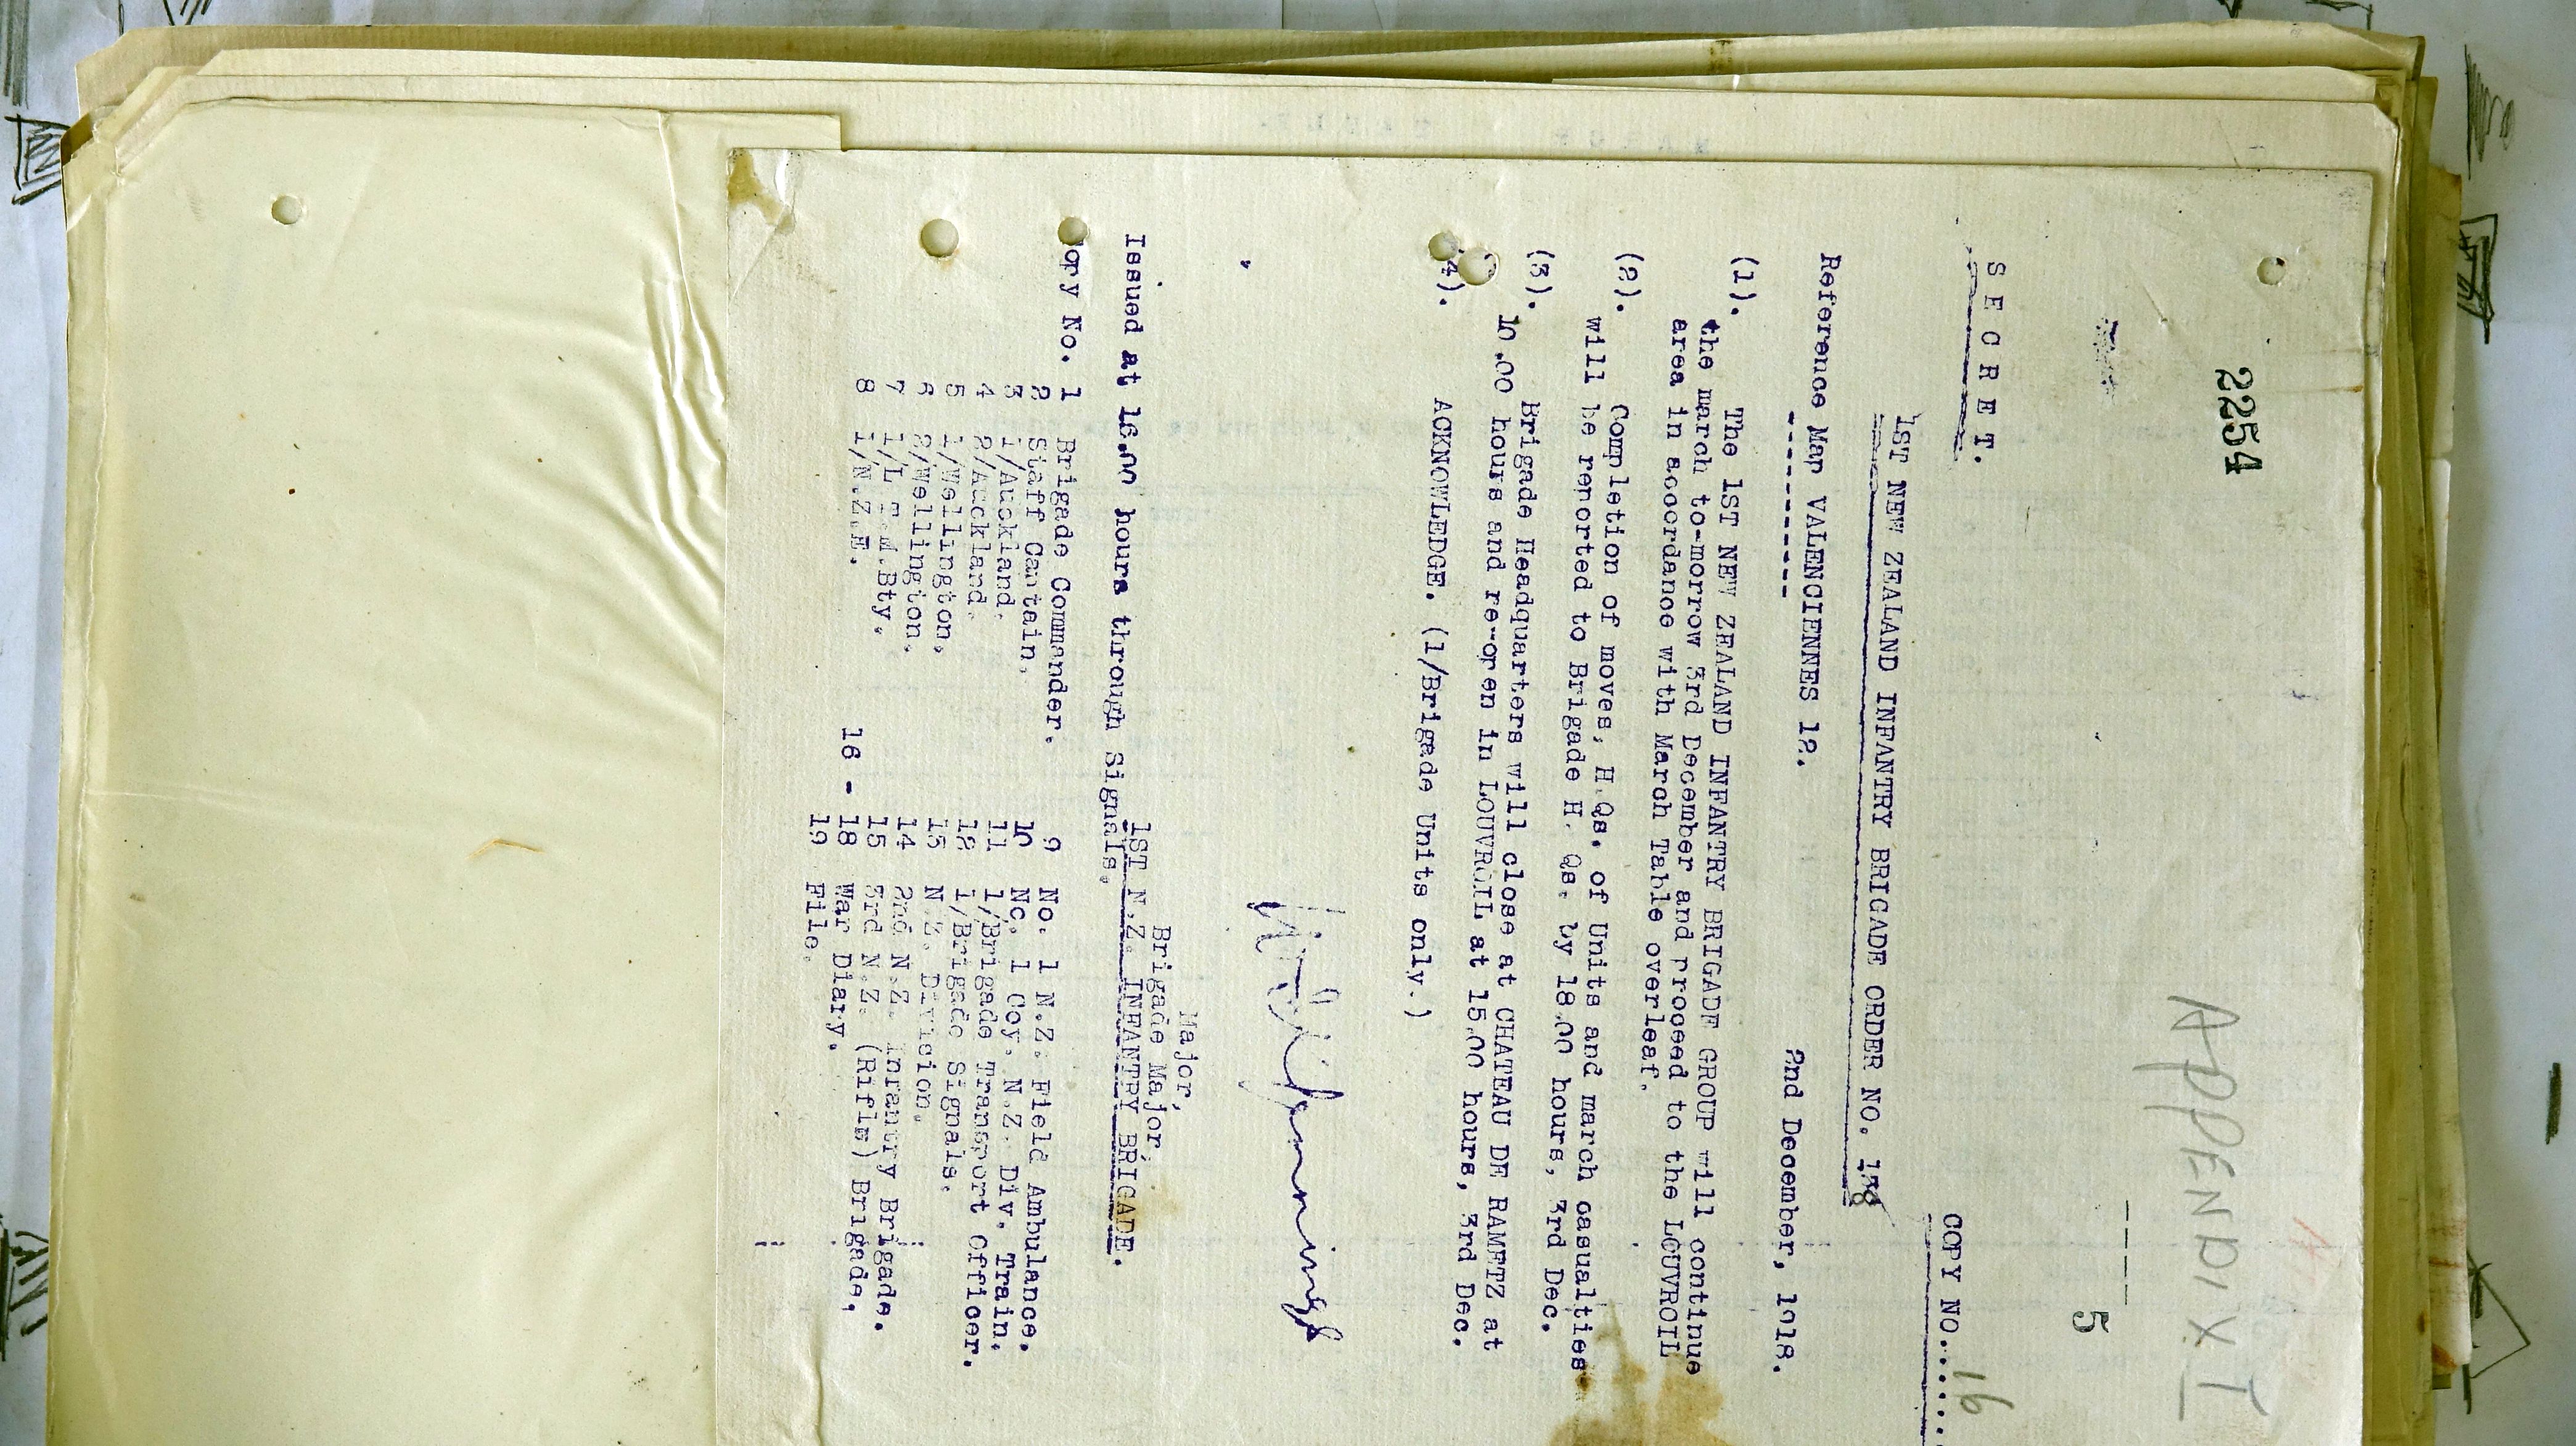 2254
APPENDIX I
5
SECRET.
COPY NO.......16
1ST NEW ZEALAND INFANTRY BRIGADE ORDER NO. 158
Reference Map VALENCIENNES 12.
2nd December, 1918.
(1). The 1ST NEW ZEALAND INFANTRY BRIGADE GROUP will continue
the march to-morrow 3rd December and proceed to the LOUVROIL
area in accordance with March Table overleaf.
(2). Completion of moves, H.Qs. of Units and march casualties
will be reported to Brigade H.Qs. by 18.00 hours, 3rd Dec.
(3). Brigade Headquarters will close at CHATEAU DE RAMETZ at
10.00 hours and re-open in LOUVROIL at 15.00 hours, 3rd Dec.
4). ACKNOWLEDGE. (1/Brigade Units only.)
Major,
Brigade Major,
1ST N.Z. INFANTRY BRIGADE.
Issued at 16.00 hours through Signals.
opy No. 1 Brigade Commander.
2 Staff Captain.
3 1/Auckland.
4 2/Auckland.
5 1/Wellington.
6 2/Wellington.
7 1/L.T.M.Bty.
8 1/N.Z.E.
9 No. 1 N.Z. Field Ambulance.
10 No. 1 Coy. N.Z. Div. Train.
11 1/Brigade Transport Officer.
12 1/Brigade Signals.
13 N.Z. Division.
14 2nd N.Z. Infantry Brigade.
15 3rd N.Z. (Rifle) Brigade.
16 - 18 War Diary.
19 File.